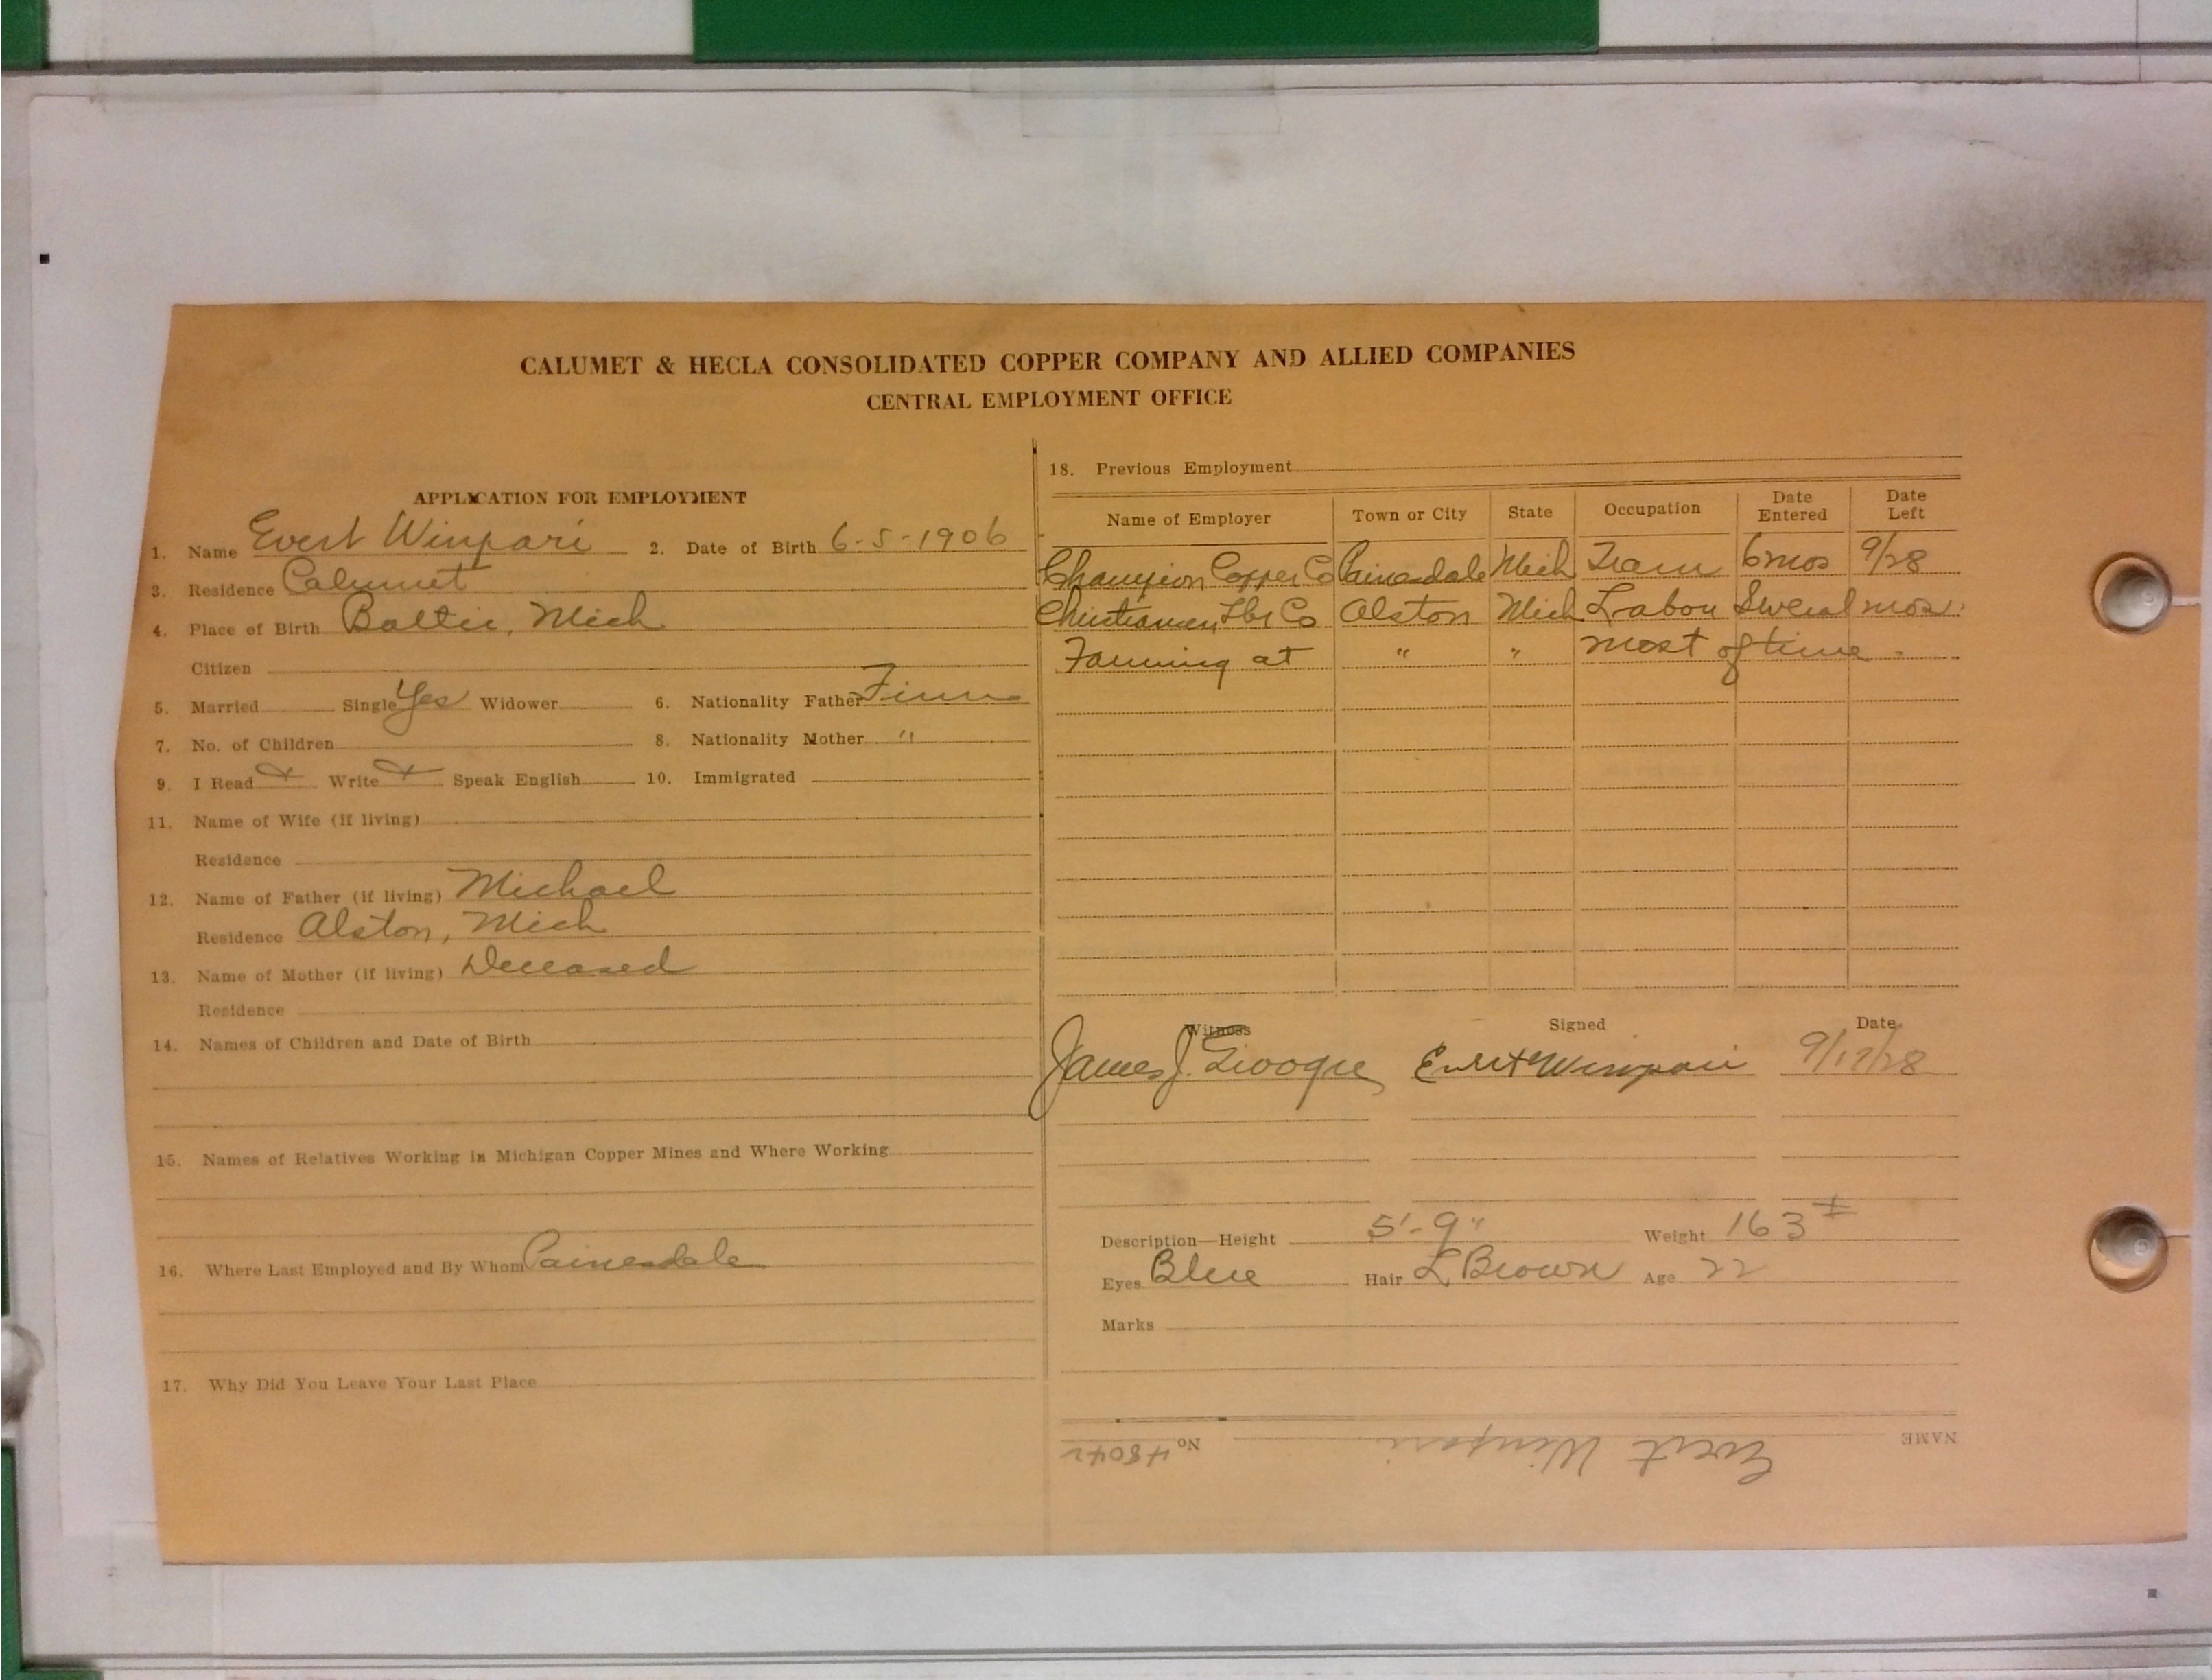 CALUMET & HECLA CONSOLIDATED COPPER COMPANY AND ALLIED COMPANIES
CENTRAL EMPLOYMENT OFFICE
APPLICATION FOR EMPLOYMENT
1. Name Evert Winpari 2. Date of Birth 6-5-1906
3. Residence Calumet
4. Place of Birth Baltic, Mich
Citizen
5. Married Single Yes Widower 6. Nationality Father Finn
7. No. of Children 8. Nationality Mother "
9. I Read Write Speak English 10. Immigrated
11. Name of Wife (if living)
Residence
12. Name of Father (if living) Michael
Residence Alston, Mich
13. Name of Mother (if living) Deceased
Residence
14. Names of Children and Date of Birth
15. Names of Relatives Working in Michigan Copper Mines and Where Working
16. Where Last Employed and By Whom Painesdale
17. Why Did You Leave Your Last Place
18. Previous Employment
Name of Employer Town or City State Occupation Date Entered Date Left
Champion Copper Co Painesdale Mich Tram 6 mos 9/28
Lbr Co Alston Mich Labor Several mos.
Farming at " " most of time
Witness Signed Date
James J. Evert Winpari 9/17/28
Description—Height 5'-9" Weight 163
Eyes Blue Hair L Brown Age 22
Marks
NAME Evert Winpari No 48042